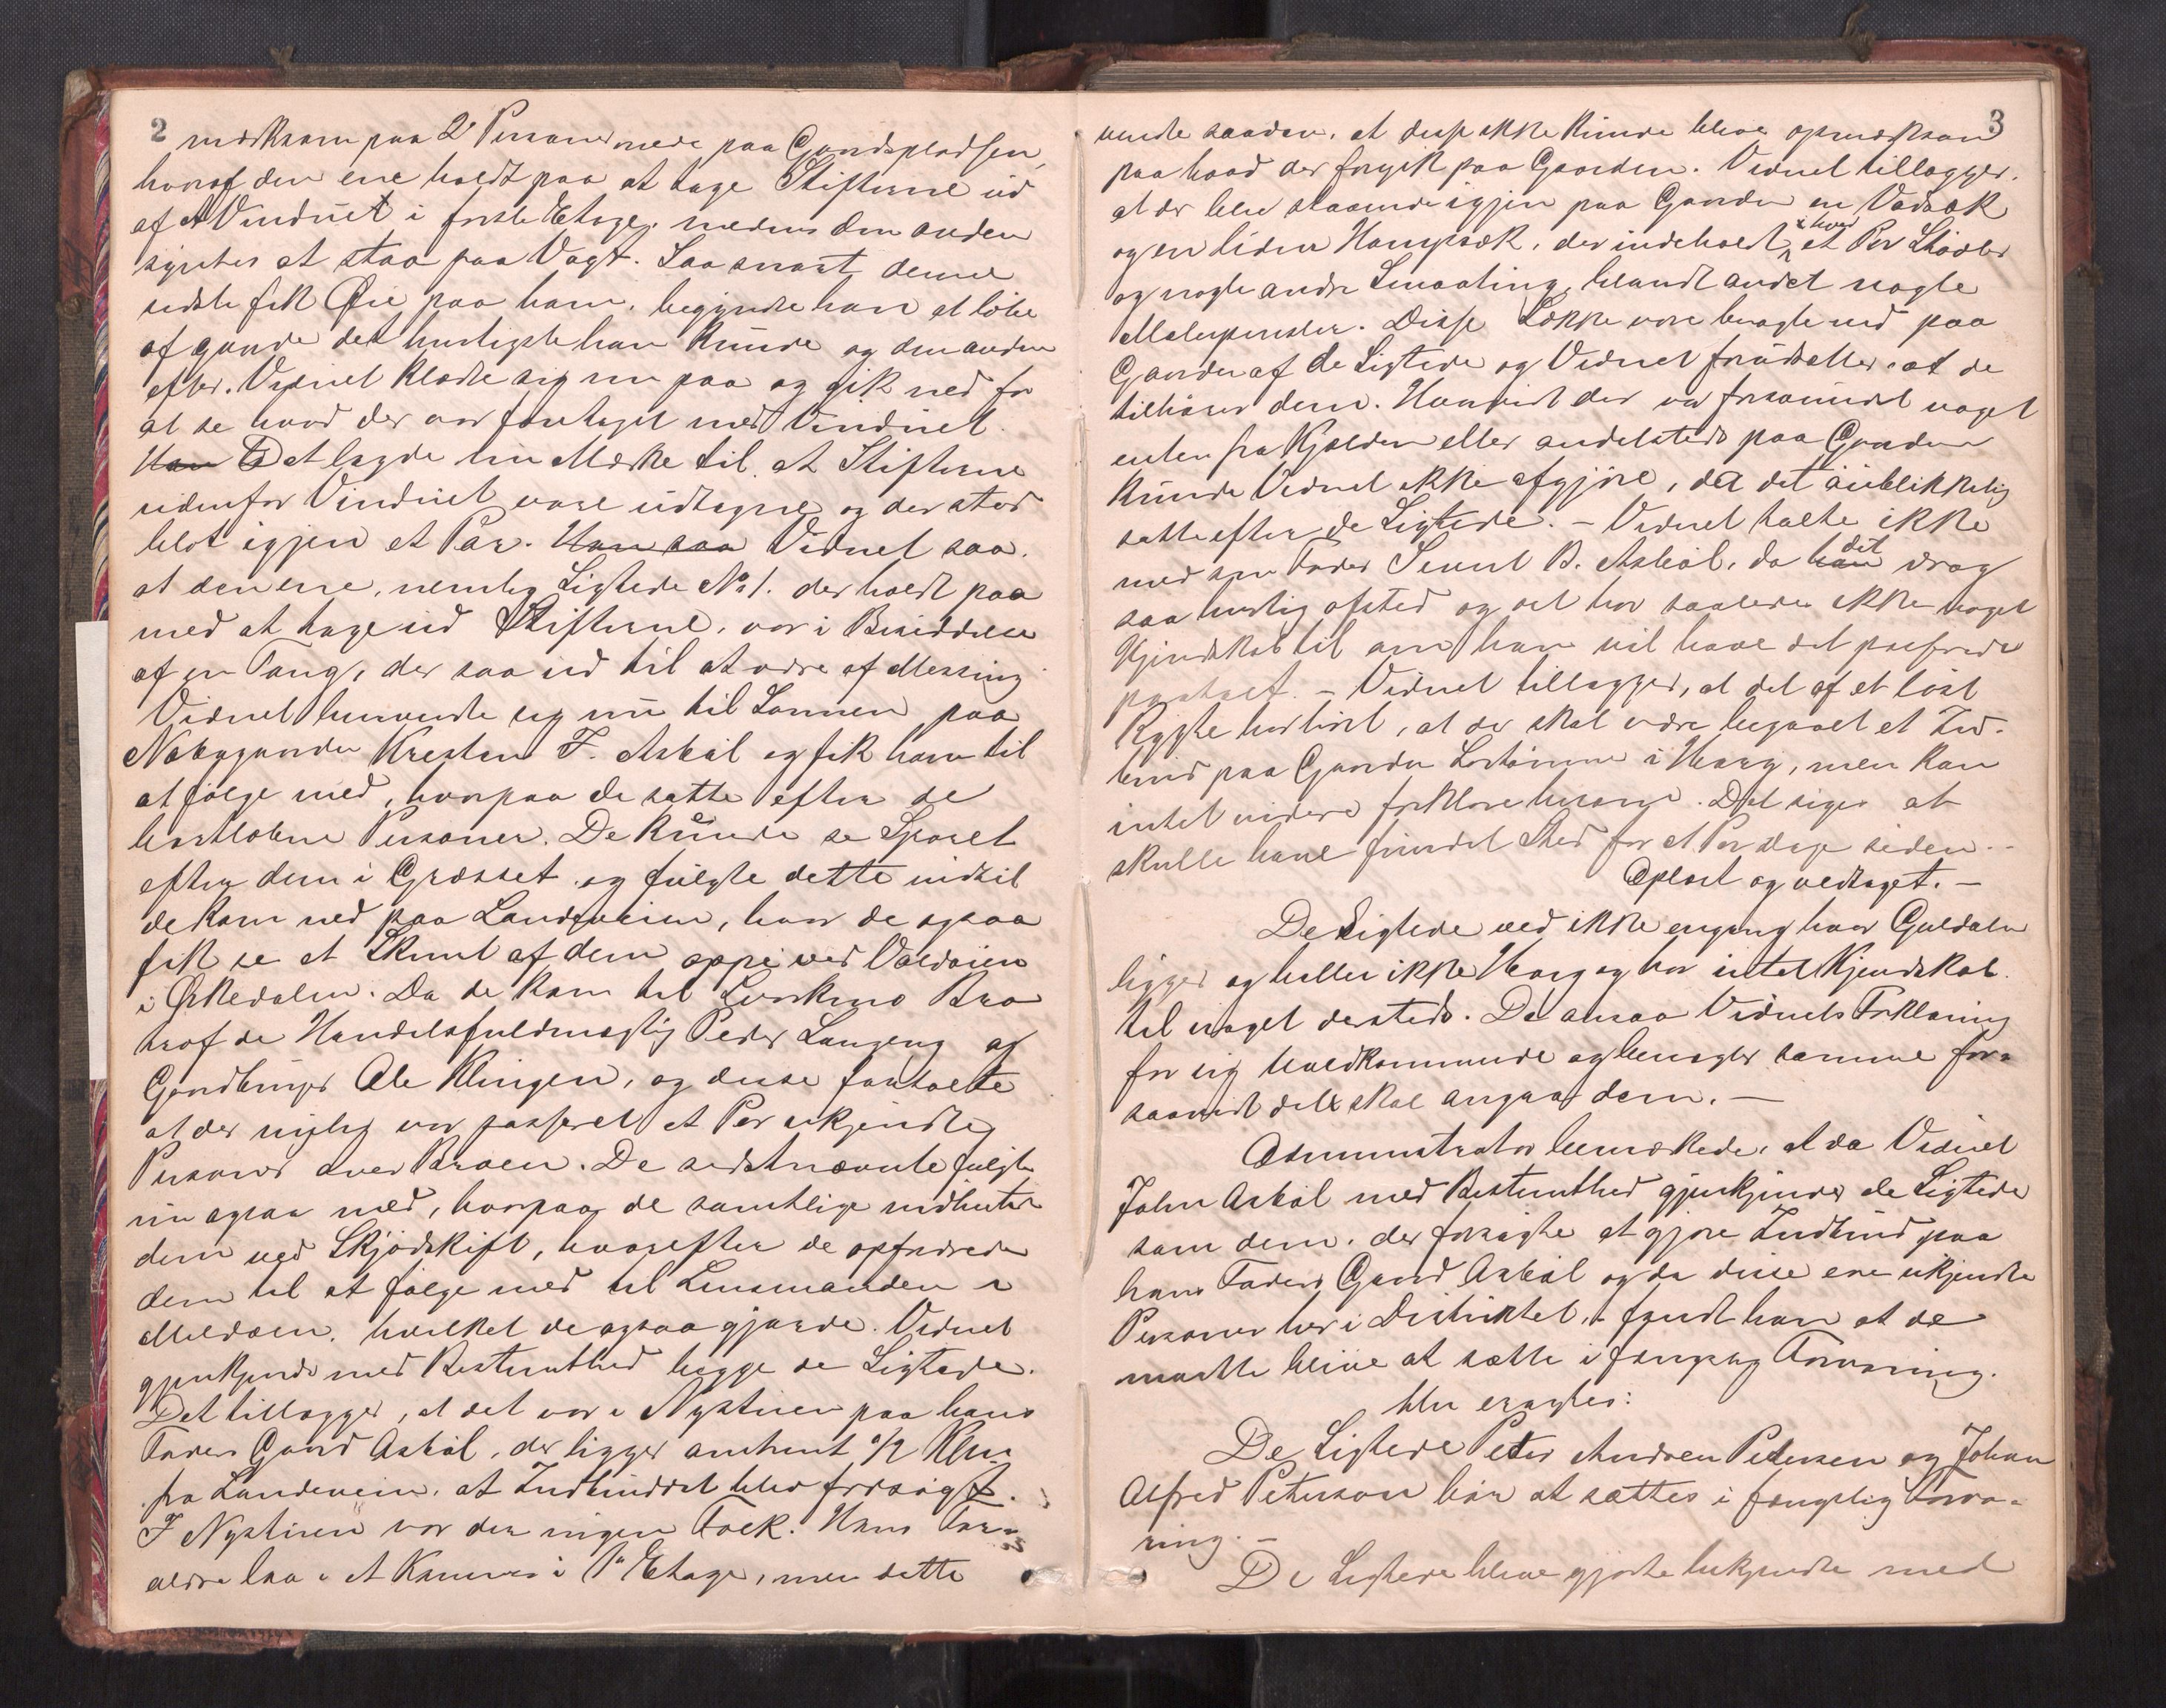 2
mærksom paa 2 Personer nede paa Gaardspladsen,
hvoraf den ene holdt paa at tage Stifterne ud
af et Vinduet i første Etage, medens den anden
syntes at staa paa Vagt. Saasnart denne
sidste fik Øie paa ham, begyndte han at løbe
af gaarde det hurtigste han kunde og den anden
efter. Vidnet klædte sig nu paa og gik ned for
at se hvad der var foretaget med Vinduet.
Han Det lagde nu Mærke til at Stifterne
udenfor Vinduet vare udtagne og der stod
blot igjen et Par. Han saa Vidnet saa,
at den ene, nemlig Sigtede No 1. der holdt paa
med at tage ud Stifterne, var i Besiddelse
af en Tang, der saa ud til at være af Messing
Vidnet henvendte sig nu til Sønnen paa
Nabogaarden Kresten F. Asbøl og fik ham til
at følge med, hvorpaa de satte efter de
bortløbne Personer. De kunde se Sporet
efter dem i Græsset og fulgte dette indtil
de kom ned paa Landeveien, hvor de ogsaa
fik se et Skimt af dem oppe ved Voldøien
i Ørkedalen. Da de kom til Bro
traf de Handelsfuldmægtig Peder Langeng og
Gaardbruger Ole Klingen, og disse fortalte
at der nylig var passeret et Par ukjendte
Personer over Broen. De sidstnævnte fulgte
nu ogsaa med, hvorpaa de samtlige indhentede
dem ved Skjødskift, hvorefter de opfordrede
dem til at følge med til Lensmanden i
Meldalen, hvilket de ogsaa gjorde. Vidnet
gjenkjendte med Bestemthed begge de Sigtede.
Det tillægger, at det var i Nystuen paa hans
Faders Gaard Asbøl, der ligger omtrent 1/2 Klm
fra Landeveien, at Indbruddet blev forsøgt.
I Nystuen var der ingen Folk. Hans For-
ældre laa i et Kammer i 1ste Etage, men dette
3
vendte saadan, at disse ikke kunde blive opmærksom
paa hvad der foregik paa Gaarden. Vidnet tillægger,
at der blev staaende igjen paa Gaarden en Vadsæk
og en liden Hampsæk, der indeholdt i hver et Par Støvler
og nogle andre Smaating, blandt andet nogle
Malerpensler. Disse Sække vare bragte ind paa
Gaarden af de Sigtede og Vidnet forudsætter at de
tilhører dem. Hvorvidt der var forsvundet noget
enten fra Kjælderen eller andetsteds paa Gaarden
kunde Vidnet ikke afgjøre, da det øieblikkelig
satte efter de Sigtede. – Vidnet talte ikke
med sin Fader Sivert B. Asbøl, da han det drog
saa hurtig afsted og det har saaledes ikke noget
Kjendskab til om han vil have det passerede
paatalt. – Vidnet tillægger, at det af et løst
Rygte har hørt, at der skal være begaaet et Ind-
brud paa Gaarden i Hoang, men kan
intet videre forklare herom. Det siges at
skulle have fundet Sted for et Par dage siden. –
Oplæst og vedtaget. –
De Sigtede ved ikke engang hvor Guldalen
ligger og heller ikke Hoang og har intet Kjendskab
til noget dersteds. De ansaa Vidnets Forklaring
for sig uvedkommende og benegter samme for-
saavidt det skal angaa dem. –
Administrator bemærkede, at da Vidnet
John Asbøl med Bestemthed gjenkjender de Sigtede
som dem, der forsøgte at gjøre Indbrud paa
hans Faders Gaard Asbøl og da disse ere ukjendte
Personer her i Distriktet, fandt han at de
maatte blive at sætte i fængslig Forvaring.
Blev eragtet:
De Sigtede Peter Andreas Petersen og Johan
Alfred Peterson bør at sættes i fængslig Forva-
ring. –
De Sigtede bleve gjorte bekjendte med